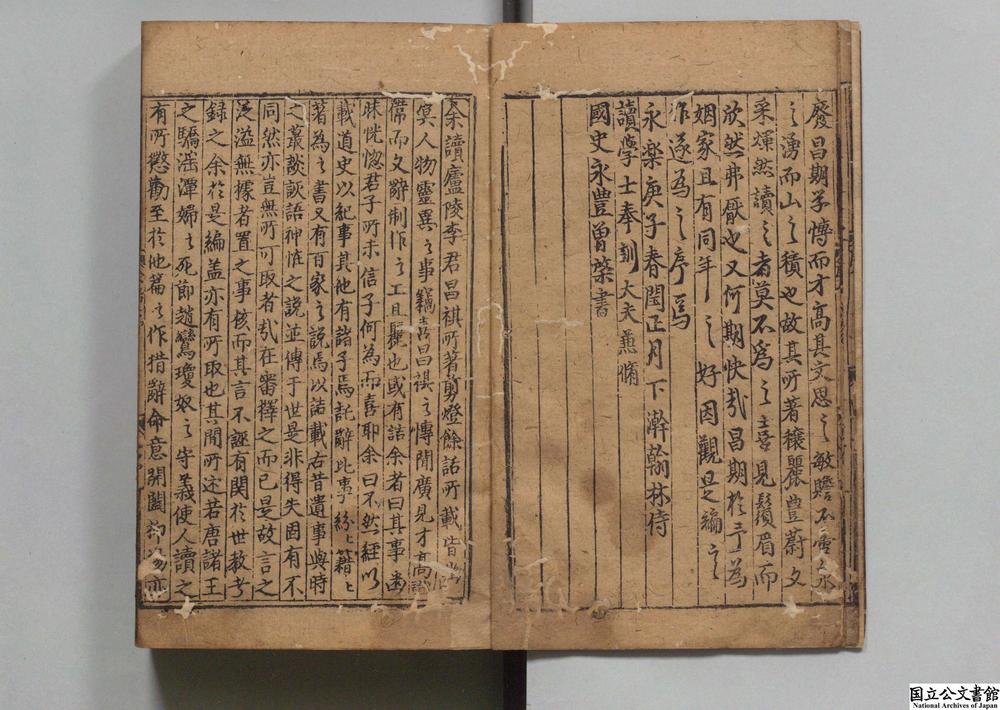 發昌期學博而才高其文思之敏贍不啻泉
之湧而山之積也故其所著穠麗豊蔚文
采煇然讀之者莫不為之喜見鬚眉而
欣然弗厭也又何期快哉昌期於予為
姻家且有同年之好因觀是編之
作遂為之序焉
永楽庚子春閏正月下澣翰林侍
讀學士奉訓大夫兼脩
國史永豊曽棨書
余讀廬陵李君昌祺所著剪燈餘話所載皆幽
冥人物靈異之事竊喜昌祺之博聞廣見才高
偹而文辭制作之工且麗也或有詰余者曰其事幽
昧恍惚君子所未信子何為而喜耶余曰不然經以
載道史以紀事其他有諸子焉託辭比事紛〻籍〻
著為之書又有百家之說焉以詰載古昔遺事與時
之叢談詼語神恠之説並傳于世是非得失固有不
同然亦豈無所可取者㢤在審擇之而已是故言之
泛溢無據者置之事核而其言不誣有関於世教者
録之余於是編盖亦有所取也其間所述若唐諸王
之驕滛潭婦之死節趙鸞瓊奴之守義使人讀之
有所懲勸至於他篇之作措辭命意開闔抑揚亦
国立公文書館
National Archives of Japan